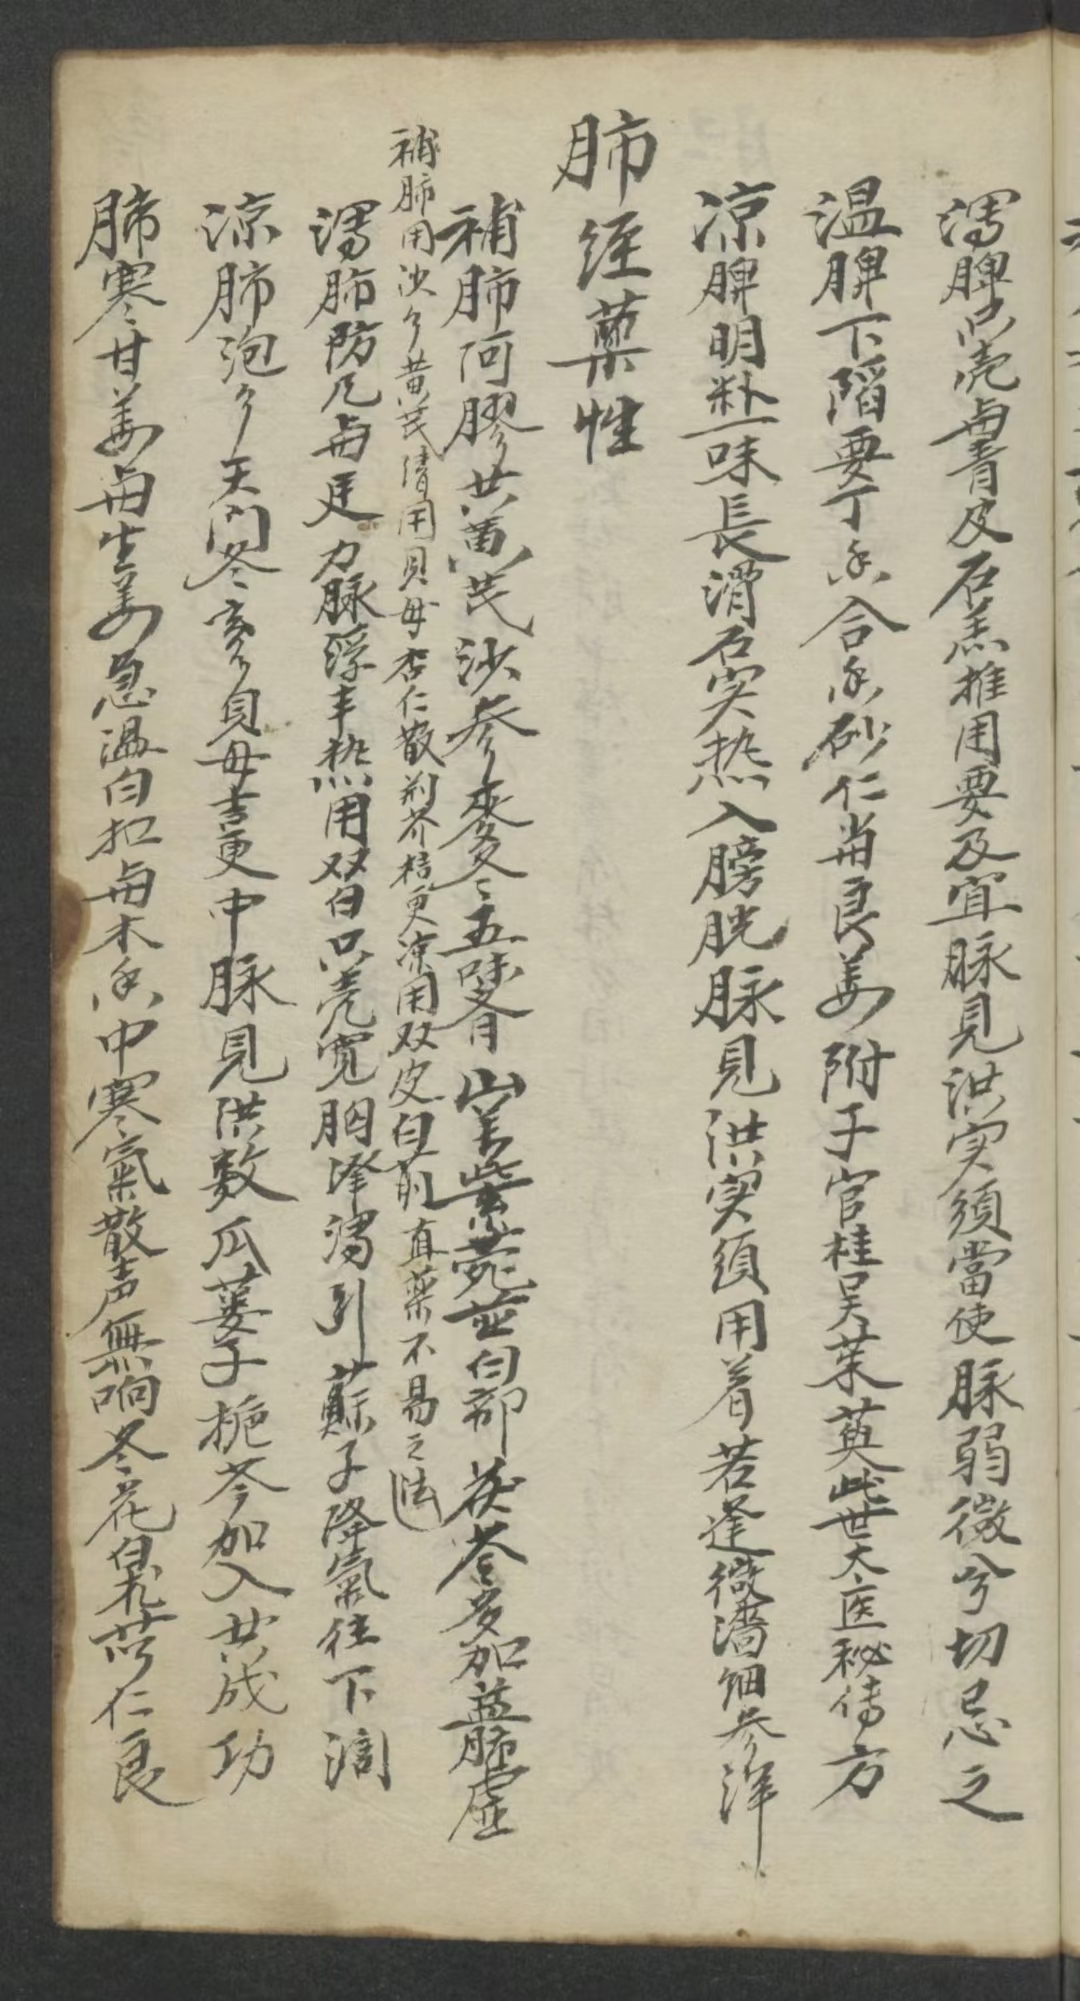 瀉脾只壳與青皮石羔推用要及宜脉見洪实須當使脉弱微兮切忌之
温脾下陷要丁香合香砂仁當良姜附子官桂吴茱萸此世太医秘傳方
凉脾明粉一味長滑石实热入膀胱脉見洪实須用着若逢微濇細参洋
肺經藥性
補肺阿膠共黄芪沙参麥冬五味脊山甘紫菀並白部茯苓多加益肺虚
補肺用沙参黄芪清用貝母杏仁散荆芥桔更凉用双皮白前直藥不易之法
瀉肺防凡與廷力脉浮丰热用双白只壳寬胸泽瀉引蘇子降氣往下
凉肺泡参天門冬麥冬貝母吉更中脉見洪数瓜蔞子栀芩加入共成功
肺寒甘姜與生姜急温白扣與木香中寒氣散声無响冬花杏仁良